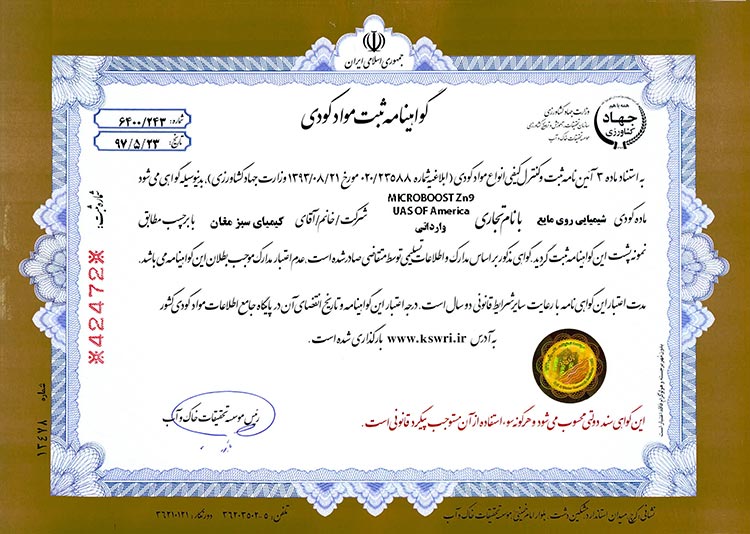 جمهوری اسلامی ایران
گواهینامه ثبت مواد کودی
همه با هم
جهاد
کشاورزی
وزارت جهاد کشاورزی
سازمان تحقیقات، آموزش و ترویج کشاورزی
موسسه تحقیقات خاک و آب
شماره: ۶۴۰۰/۲۴۳
تاریخ: ۹۷/۵/۲۳
به استناد ماده ۳ آیین نامه ثبت و کنترل کیفی انواع مواد کودی (ابلاغیه شماره ۰۲۰/۲۳۵۸۸ مورخ ۱۳۹۳/۰۸/۲۱ وزارت جهاد کشاورزی)، بدینوسیله گواهی می شود
ماده کودی شیمیایی روی مایع با نام تجاری MICROBOOST Zn9 UAS OF America وارداتی شرکت/خانم/آقای کیمیای سبز مغان با برچسب مطابق
نمونه پشت این گواهینامه ثبت گردید. گواهی مذکور بر اساس مدارک و اطلاعات تسلیمی توسط متقاضی صادر شده است. عدم اعتبار مدارک موجب بطلان این گواهینامه می باشد.
مدت اعتبار این گواهی نامه با رعایت سایر شرایط قانونی دو سال است. درجه اعتبار این گواهینامه و تاریخ انقضای آن در پایگاه جامع اطلاعات مواد کودی کشور
به آدرس www.kswri.ir بارگذاری شده است.
رئیس موسسه تحقیقات خاک و آب
این گواهی سند دولتی محسوب می شود و هرگونه سوء استفاده از آن مستوجب پیگرد قانونی است.
شماره ثبت:
※42472※
شماره ۱۲۴۷۸
بدون مهر برجسته و هولوگرام فاقد اعتبار است
نشانی: کرج، میدان استاندارد، مشکین دشت، بلوار امام خمینی، موسسه تحقیقات خاک و آب
تلفن: ۵-۳۶۲۰۳۵۰۲ دورنگار: ۳۶۲۱۰۱۲۱